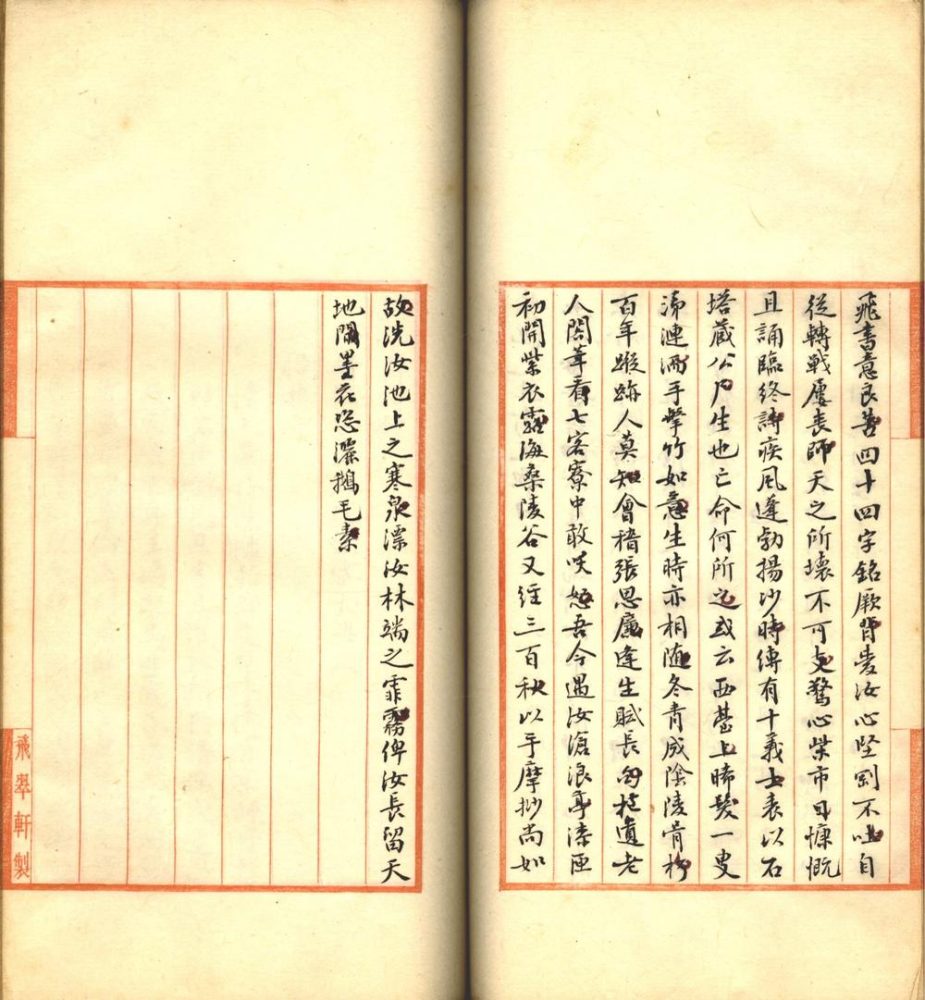 飛書意良苦四十四字銘厥背愛汝心堅剛不吐自
從轉戰屢喪師天之所壞不可支驚心柴市日慷慨
且誦臨終詩疾風蓬勃揚沙時傳有十義士表以石
塔藏公尸生也亡命何所之或云西臺上晞髮一叟
涕漣洏手擊竹如意生時亦相隨冬青成陰陵骨朽
百年蹤跡人莫知會稽張思廉逢生賦長句抱遺老
人閣筆看七客寮中敢咲怒吾今遇汝滄浪亭漆匣
初開紫衣露海桑陵谷又經三百秋以手摩挲尚如
故洗汝池上之寒泉漂汝林端之霏霧俾汝長留天
地間墨花恐漂鵝毛素
飛翠軒製